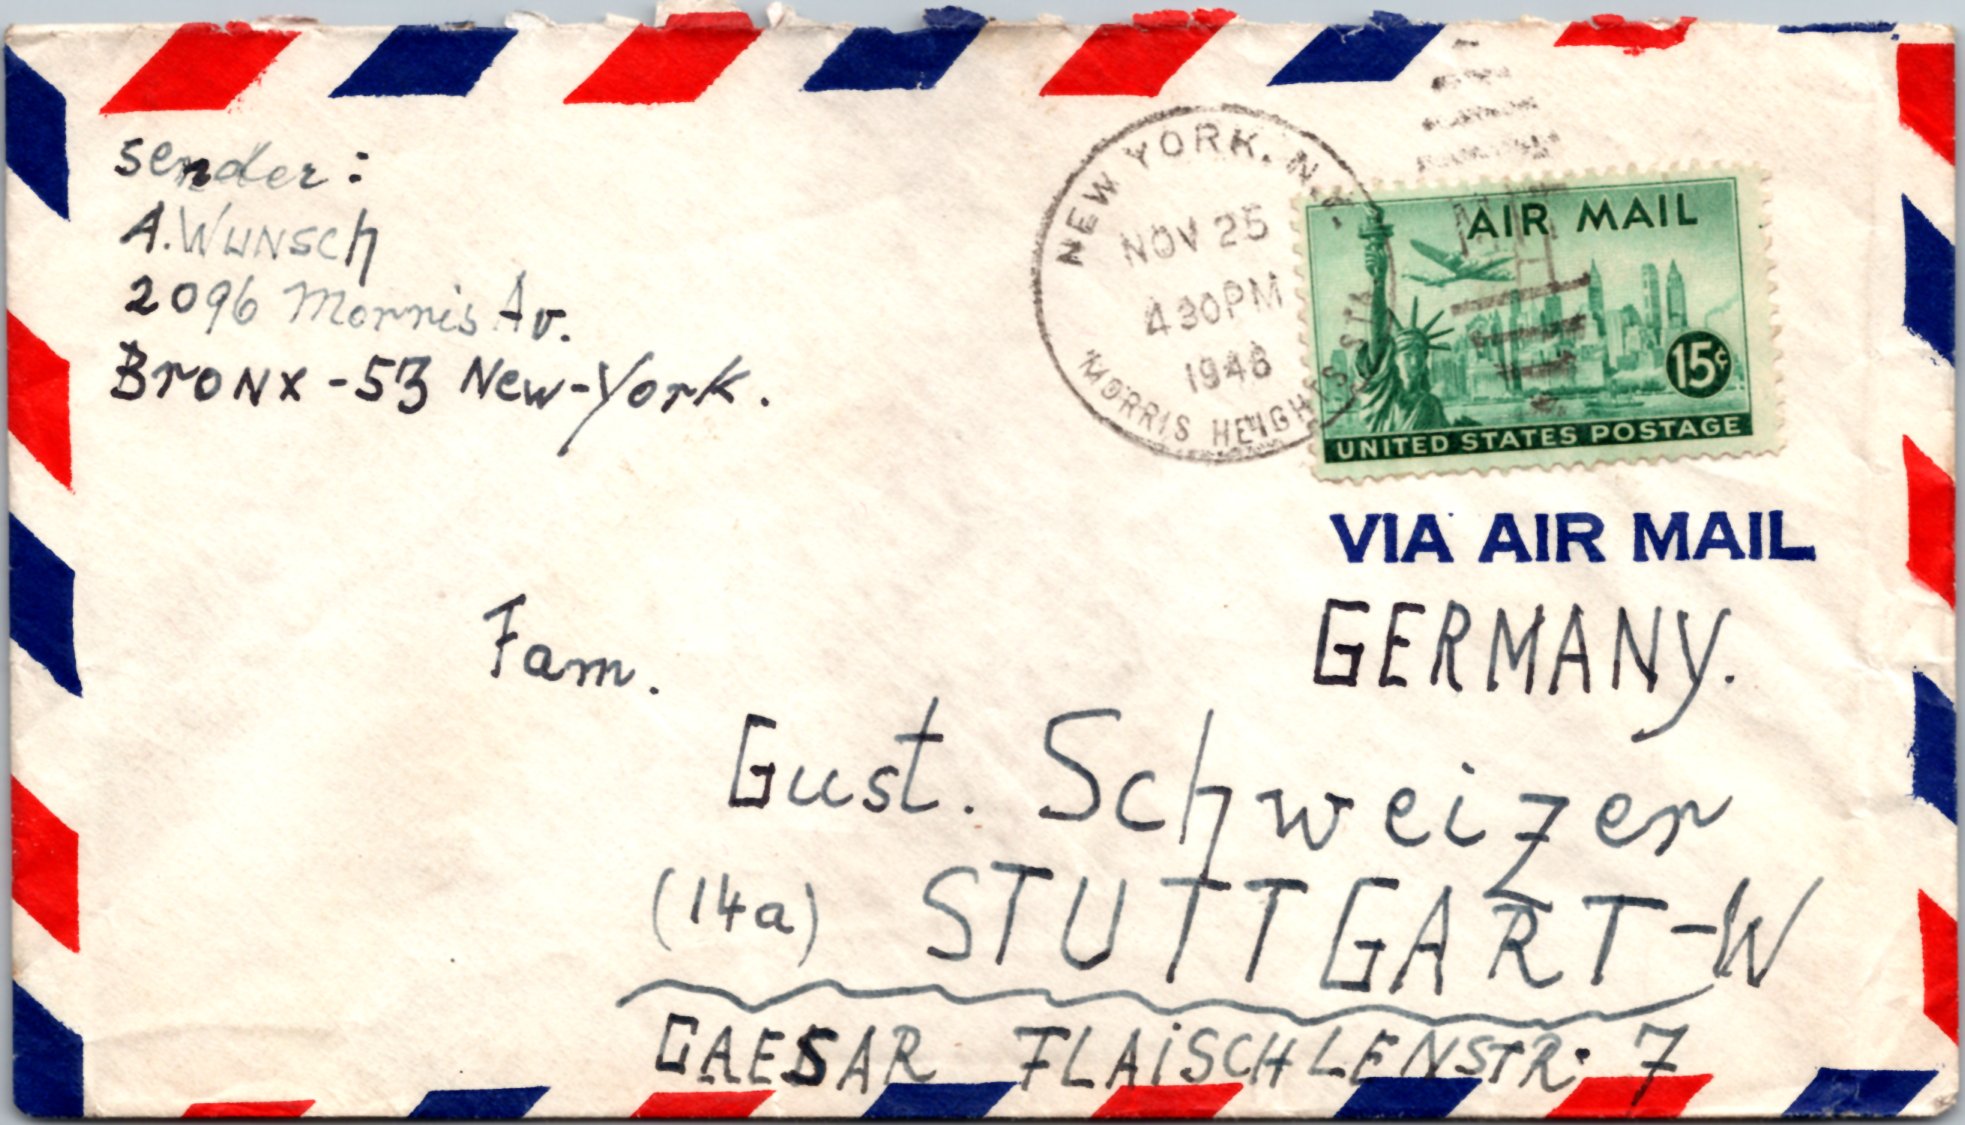 sender:
A. Wunsch
2096 Morris Av.
Bronx - 53 New-York.
NEW YORK, N.Y.
NOV 25
4 30 PM
1948
MORRIS HEIGHTS STA.
AIR MAIL
15¢
UNITED STATES POSTAGE
VIA AIR MAIL
GERMANY.
Fam.
Gust. Schweizer
(14a) STUTTGART-W
CAESAR FLAiSCHLENSTR. 7